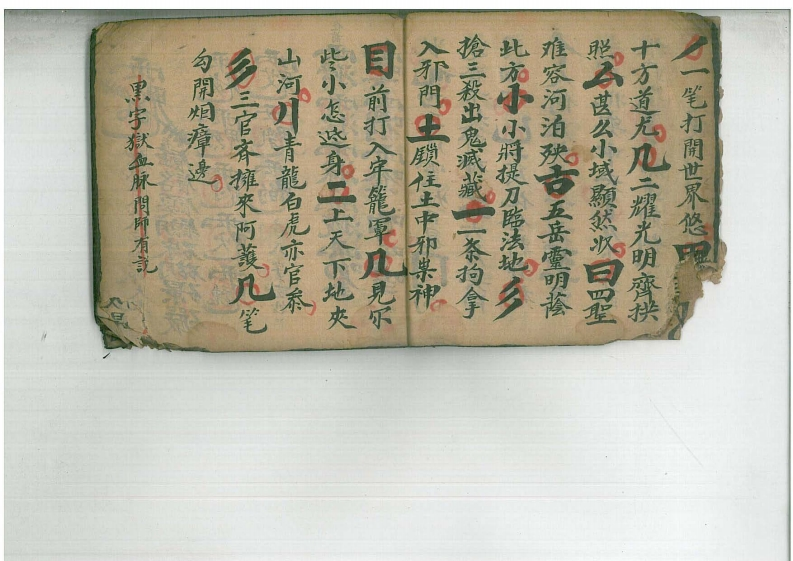 丿一笔打開世界悠田
十方道尤几二耀光明齊拱
照厶甚么小域顯然収曰四聖
难容河泊殃古五岳靈明蔭
此方小小將提刀臨法地彡
搶三殺出鬼滅藏一一条拘拿
入邪門土鎖住土中邪祟神
目前打入牢籠軍几見尔
些小怎逃身二上天下地夾
山河川青龍白虎亦官叅
彡三官斉擁來阿護几笔
勾開烟瘴邊
黑字獄血脉問師有訣